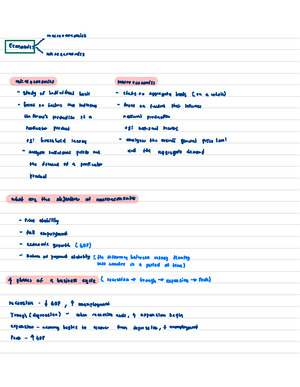 macroeconomics
Economics
microeconomics
microeconomics
- study of individual
- focus on factors that influence
the firm's production of a
particular product
eg: household income
- analyses individual prices and
the demand of a particular
product
macroeconomics
- study on aggregate levels (on a whole)
- focus on factors that influence
national production
eg: national income
- analyses the overall general price level
and the aggregate demand
what are the objectives of macroeconomics
- price stability
- full employment
- economic growth (GDP)
- balance of payment stability (the difference between money flowing
into country in a period of time)
4 phases of a business cycle (recession → trough → expansion → peak)
recession - ↓ GDP, ↑ unemployment
Trough (depression) - when recession ends, ↑ expansion begin
expansion - economy begins to recover from depression, ↓ unemployment
Peak - ↑ GDP